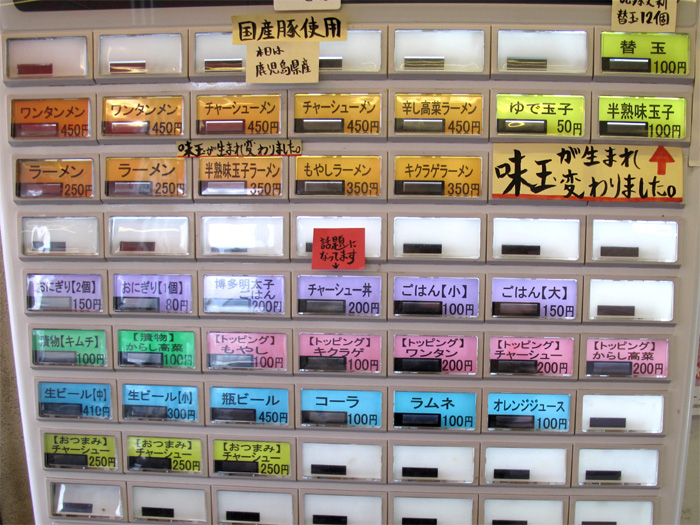 替玉12個
国産豚使用
本日は
鹿児島県産
替玉
100円
ワンタンメン
450円
ワンタンメン
450円
チャーシューメン
450円
チャーシューメン
450円
辛し高菜ラーメン
450円
ゆで玉子
50円
半熟味玉子
100円
味玉が生まれ変わりました。
ラーメン
250円
ラーメン
250円
半熟味玉子ラーメン
350円
もやしラーメン
350円
キクラゲラーメン
350円
味玉が生まれ
変わりました。
話題に
なってます
おにぎり【2個】
150円
おにぎり【1個】
80円
博多明太子
ごはん
200円
チャーシュー丼
200円
ごはん【小】
100円
ごはん【大】
150円
漬物【キムチ】
100円
【漬物】
からし高菜
100円
【トッピング】
もやし
100円
【トッピング】
キクラゲ
100円
【トッピング】
ワンタン
200円
【トッピング】
チャーシュー
200円
【トッピング】
からし高菜
200円
生ビール【中】
410円
生ビール【小】
300円
瓶ビール
450円
コーラ
100円
ラムネ
100円
オレンジジュース
100円
【おつまみ】
チャーシュー
250円
【おつまみ】
チャーシュー
250円
【おつまみ】
チャーシュー
250円